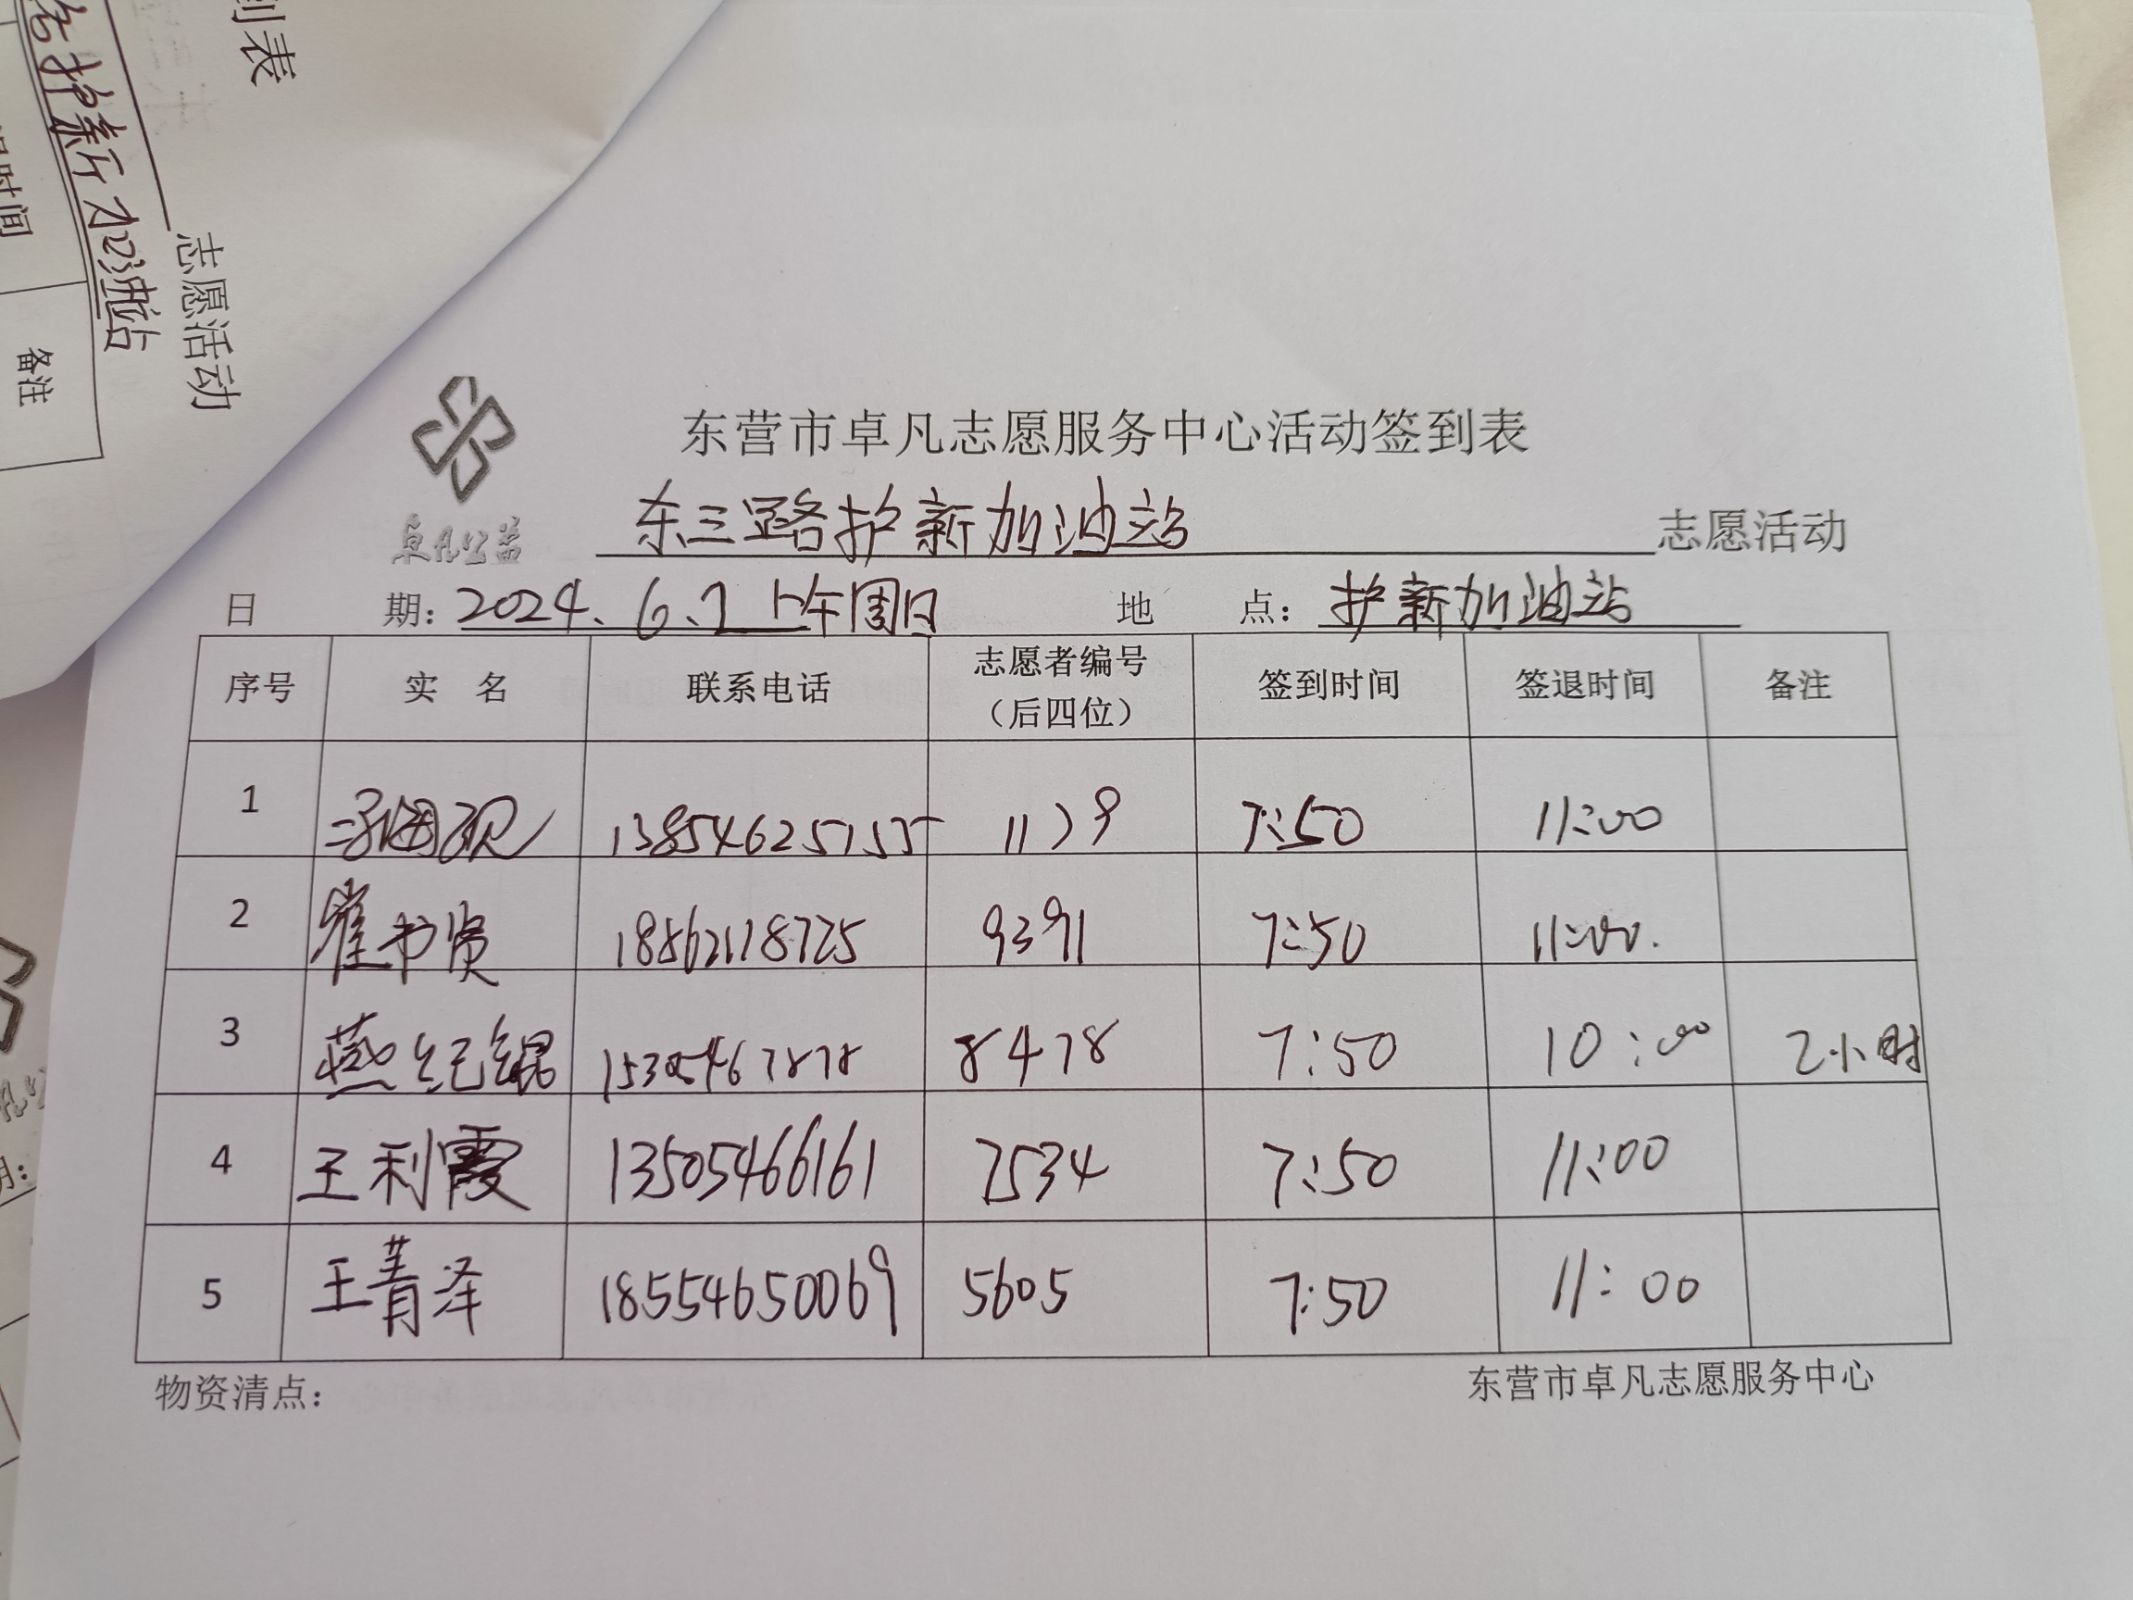 到表
志愿活动
护新加油站
时间
备注
卓凡公益
东营市卓凡志愿服务中心活动签到表
东三路护新加油站 志愿活动
日 期：2024.6.2 上午周日 地 点：护新加油站
序号 实 名 联系电话 志愿者编号（后四位） 签到时间 签退时间 备注
1 13854625155 1179 7:50 11:00
2 崔书贤 18562118725 9391 7:50 11:00.
3 燕纪锟 15305467878 8478 7:50 10:00 2小时
4 王利霞 13505466161 7534 7:50 11:00
5 王菁泽 18554650069 5605 7:50 11:00
物资清点： 东营市卓凡志愿服务中心